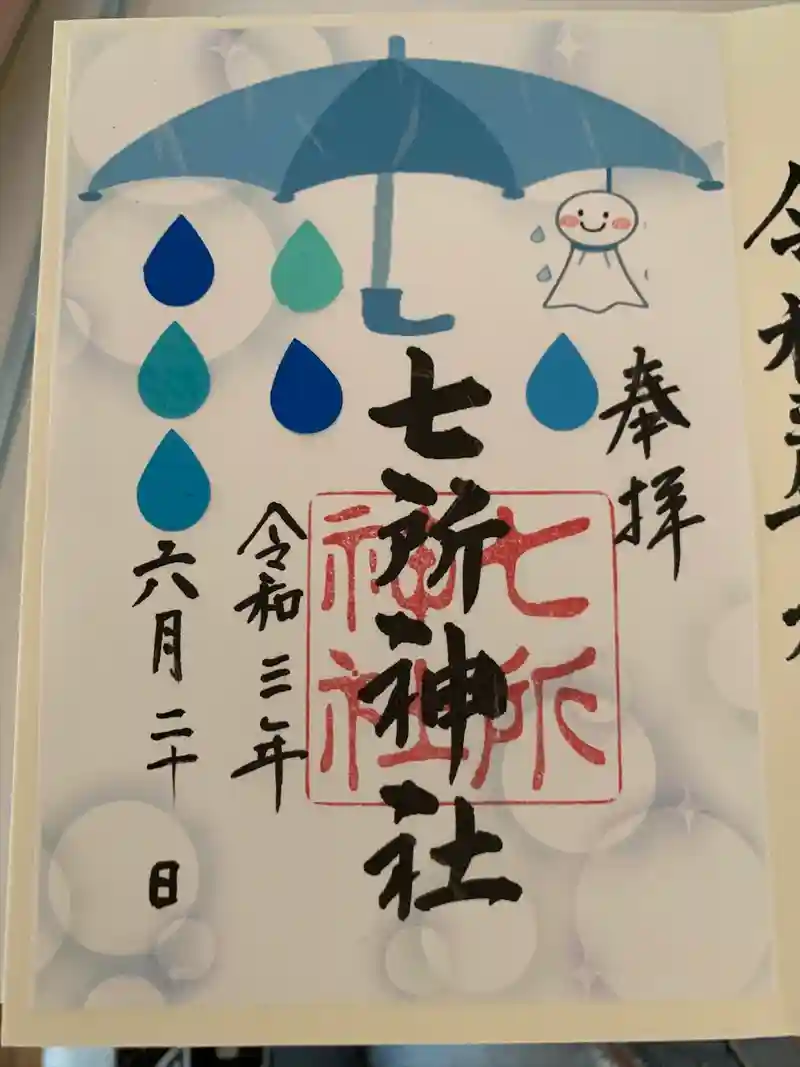 奉拝
七所神社
七所
神社
令和三年
六月二十日